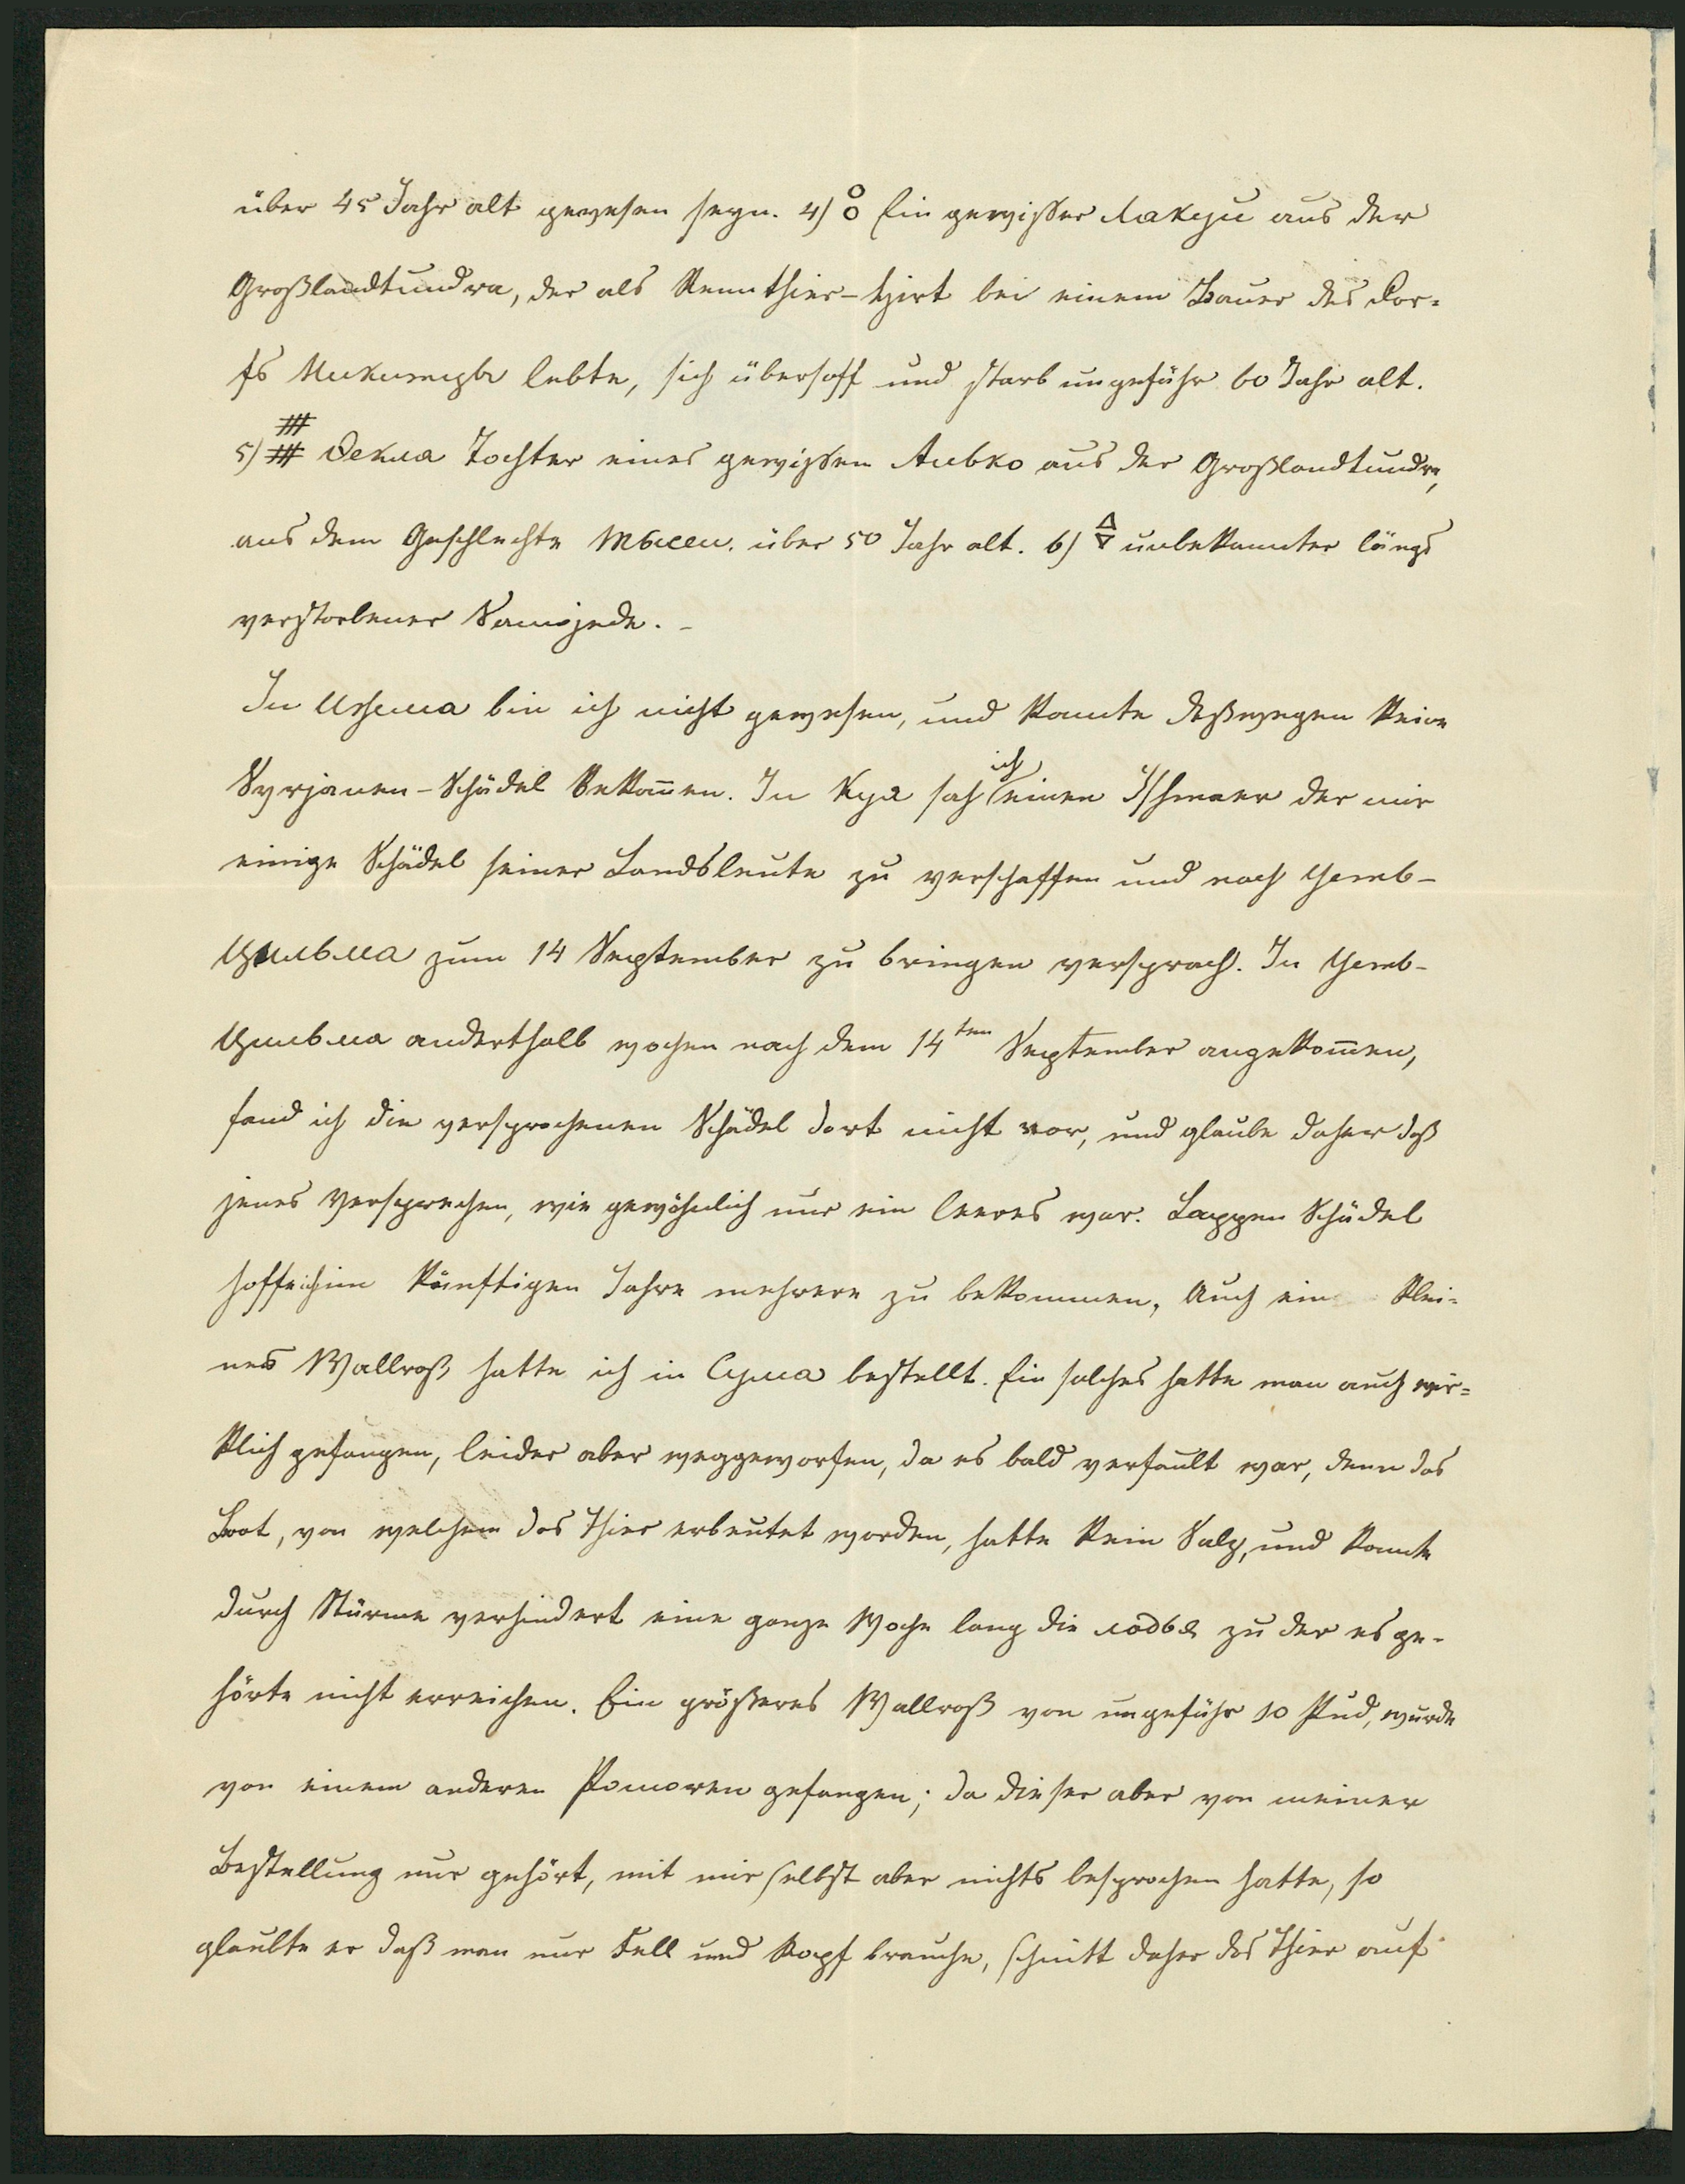 über 45 Jahr alt gewesen seyn. 4) 8 Ein gewisser Лакуи aus der
Großlandtundra, der als Rennthier-Hirt bei einem Bauer des Dor-
fs Никитцы lebte, sich übersoff und starb ungefähr 60 Jahr alt.
5) Фекла Tochter eines gewissen Ливко aus der Großlandtundra,
aus dem Geschlechte Тысы. über 50 Jahr alt. 6) unbekannter längs
verstorbener Samojede. –
In Ижема bin ich nicht gewesen, und konnte deßwegen keine
Syrjänen-Schädel bekom̅en. In Куя sah ich einen Ishmaer der mir
einige Schädel seiner Landsleute zu verschaffen und nach Усть-
Цильма zum 14 September zu bringen versprach. In Усть-
Цильма anderthalb wochen nach dem 14ten September angekom̅en,
fand ich die versprochenen Schädel dort nicht vor, und glaube daher daß
jenes Versprechen, wie gewöhnlich nur ein leeres war. Lappen Schädel
hoffe ich im künftigen Jahre mehrere zu bekommen. Auch ein klei-
nes Wallroß hatte ich in Сума bestellt. Ein solches hatte man auch wir-
klich gefangen, leider aber weggeworfen, da es bald verfault war, denn das
Boot, von welchem das Thier erbeutet worden, hatte kein Salz, und konnte
durch Stürme verhindert eine ganze Woche lang die лодья zu der es ge-
hörte nicht erreichen. Ein größeres Wallroß von ungefähr 10 Pud, wurde
von einem anderen Pomoren gefangen; da dieser aber von meiner
Bestellung nur gehört, mit mir selbst aber nichts besprochen hatte, so
glaubte er daß man nur Fell und Kopf brauche, schnitt daher das Thier auf